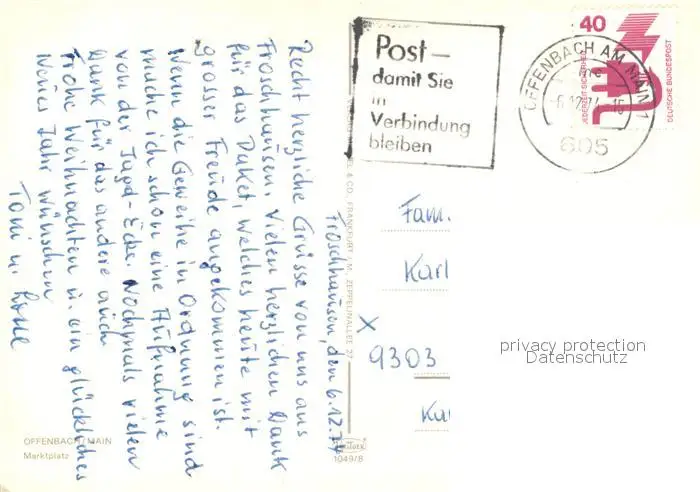 Froschhausen, den 6.12.74
Recht herzliche Grüsse von uns aus
Froschhausen. Vielen herzlichen Dank
für das Paket, welches heute mit
grosser Freude angekommen ist.
Wenn die Geweihe in Ordnung sind
mache ich schon eine Aufnahme
von der Jagd-Ecke. Nochmals vielen
Dank für das andere auch.
Frohe Weihnachten u. ein glückliches
neues Jahr wünschen
Toni u.
OFFENBACH/MAIN
Marktplatz
& CO., FRANKFURT / M., ZEPPELINALLEE 27
1049/8
Post –
damit Sie
in
Verbindung
bleiben
OFFENBACH AM MAIN 1
6.12.74 - 15
605
40
JEDERZEIT SICHERHEIT
DEUTSCHE BUNDESPOST
Fam.
Karl
X
9303
privacy protection
Datenschutz